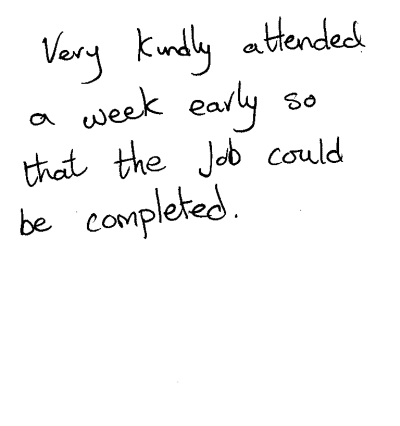 Very kindly attended
a week early so
that the Job could
be completed.